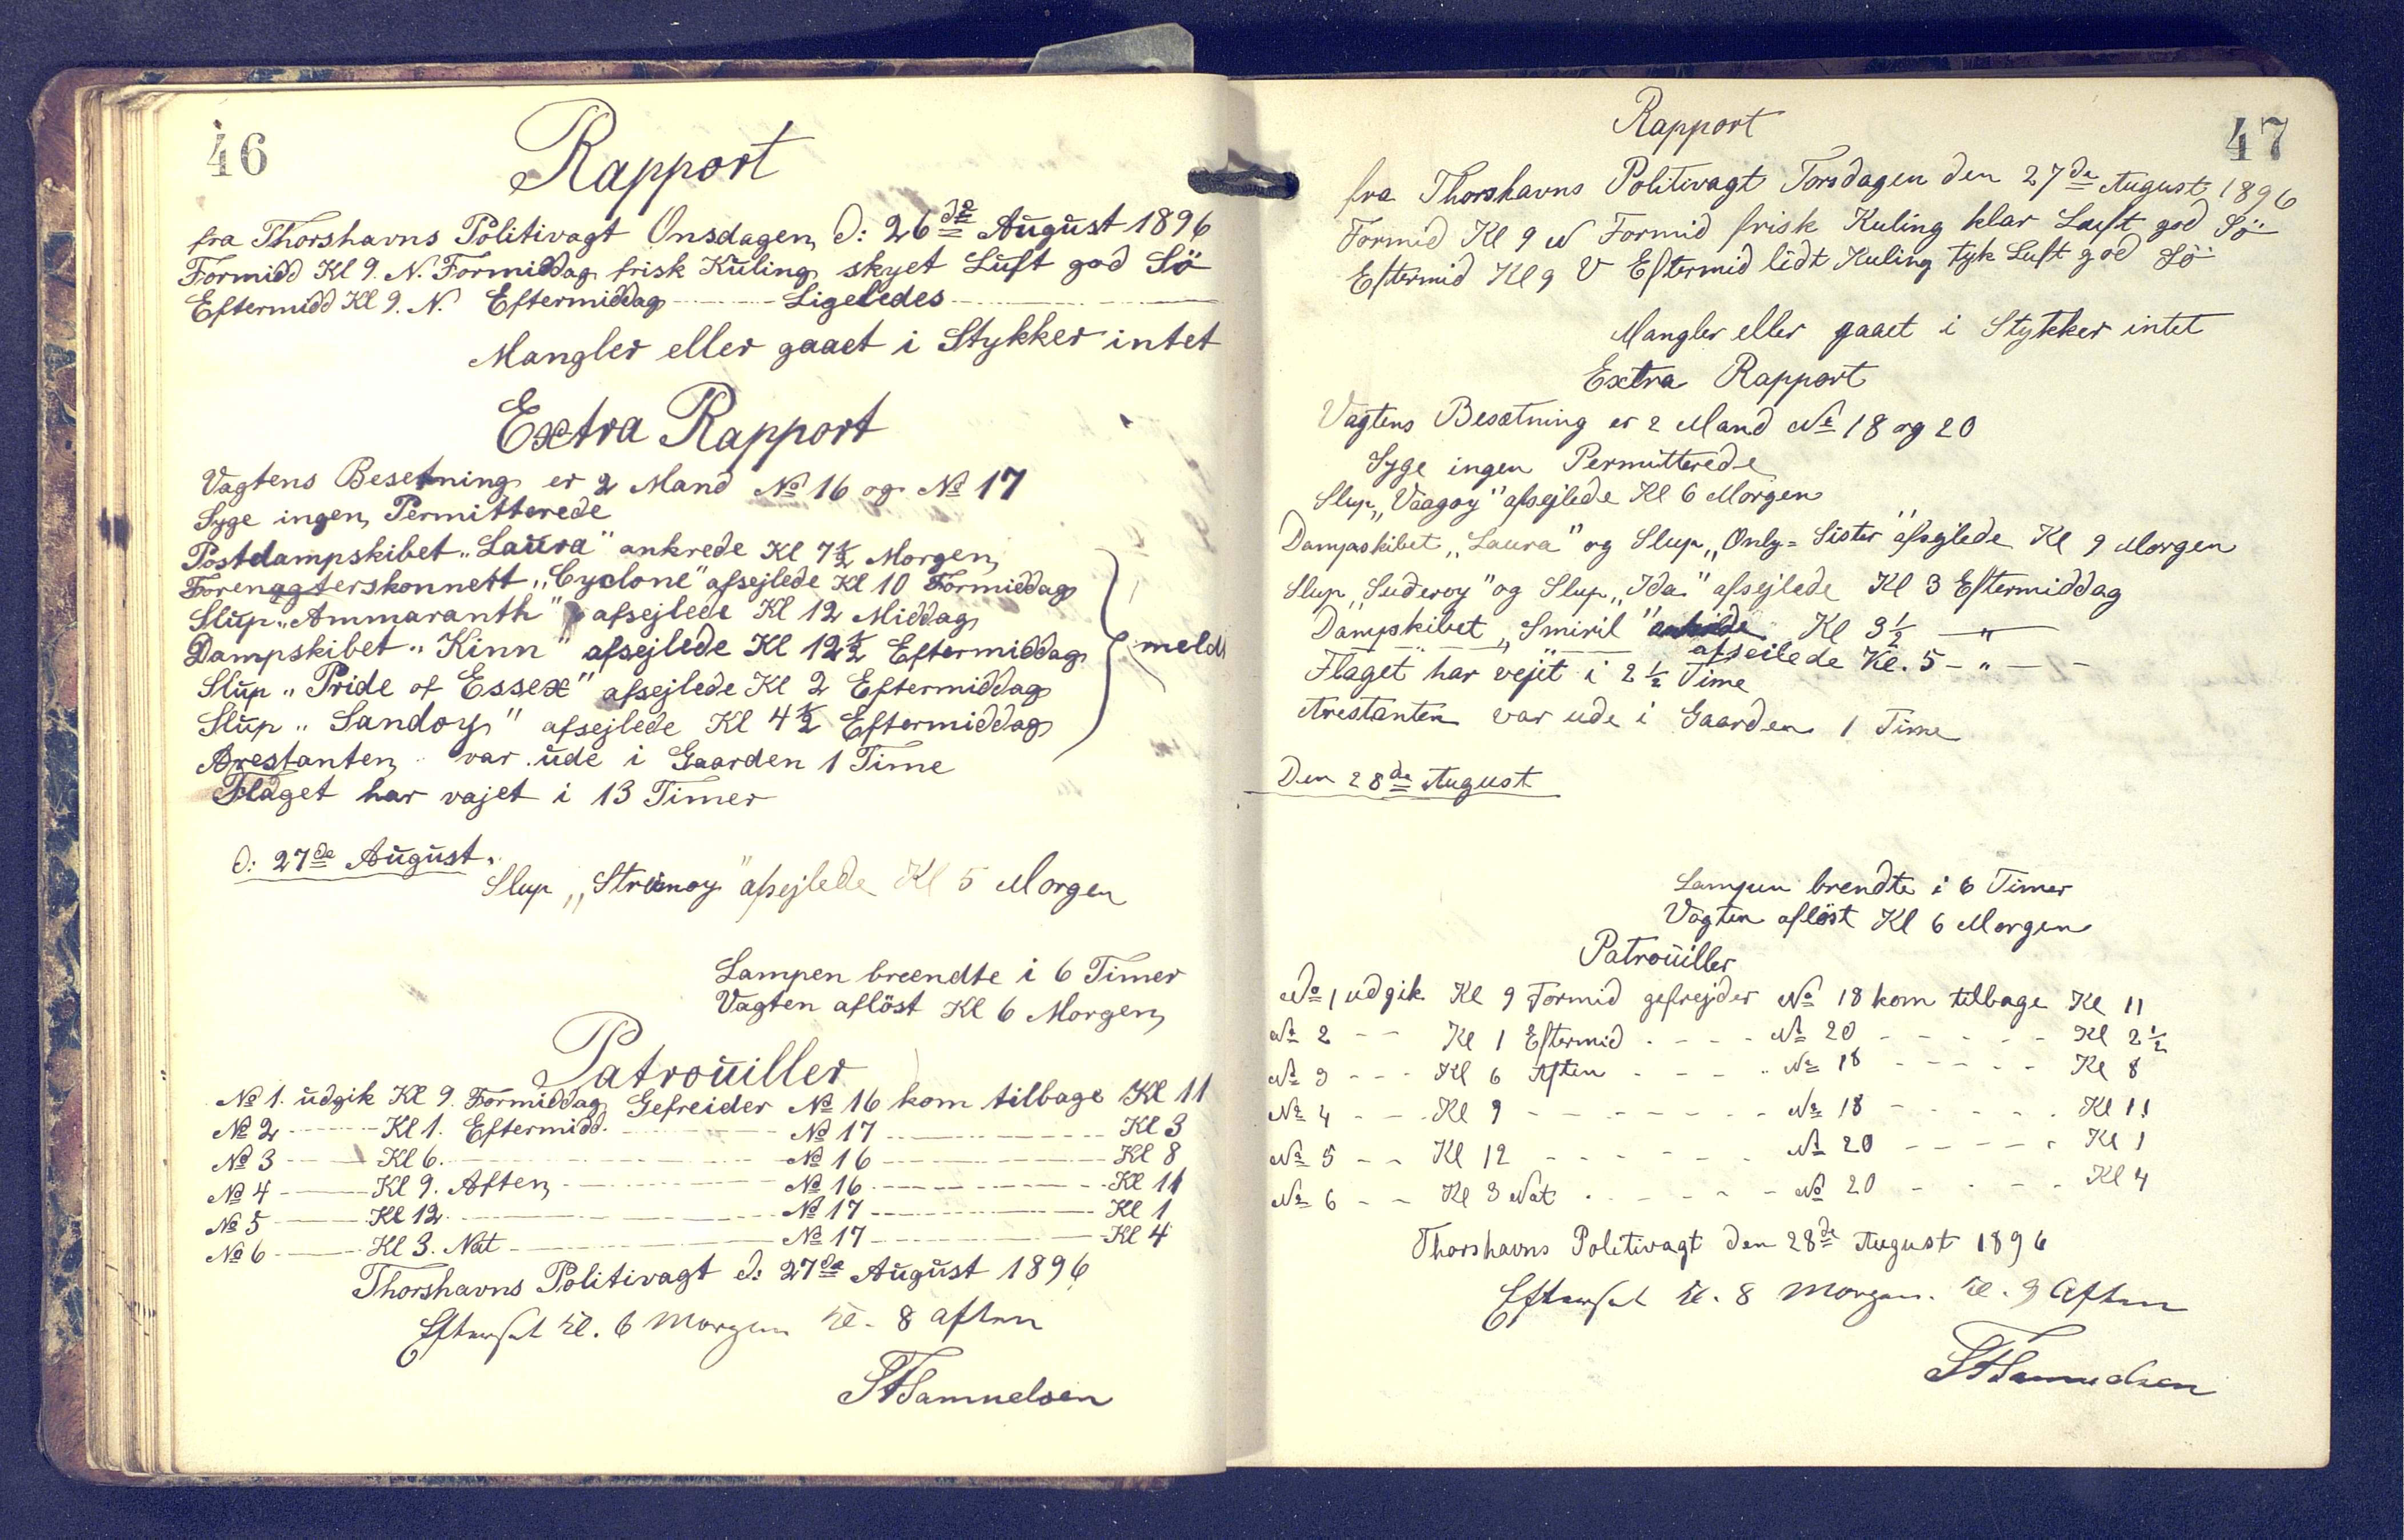 46
Rapport
fra Thorshavns Politivagt Onsdagen d: 26de August 1896
Formidd Kl 9. N. Formiddag frisk Kuling skyet Luft god Sö
Eftermidd Kl 9. N. Eftermiddag ---- Ligeledes ----
Mangler eller gaaet i Stykker intet
Extra Rapport
Vagtens Besetning er 2 Mand No 16 og No 17
Syge ingen Permitterede
Postdampskibet „Laura" ankrede Kl 7½ Morgen
Forenagterskonnett „Cyclone" afsejlede Kl 10 Formiddag
Slup „Ammaranth" afsejlede Kl 12 Middag
Dampskibet „Kinn" afsejlede Kl 12½ Eftermiddag
meldt
Slup „Pride of Essex" afsejlede Kl 2 Eftermiddag
Slup „Sandoy" afsejlede Kl 4½ Eftermiddag
Arestanten var ude i Gaarden 1 Time
Flaget har vajet i 13 Timer
d: 27de August.
Slup „Strømoy" afsejlede Kl 5 Morgen
Lampen breendte i 6 Timer
Vagten aflöst Kl 6 Morgen
Patrouiller
No 1. udgik Kl 9. Formiddag Gefreider No 16 kom tilbage Kl 11
No 2 ---- Kl 1. Eftermidd. ---- No 17 ---- Kl 3
No 3 ---- Kl 6. ---- No 16 ---- Kl 8
No 4 ---- Kl 9. Aften ---- No 16 ---- Kl 11
No 5 ---- Kl 12 ---- No 17 ---- Kl 1
No 6 ---- Kl 3. Nat ---- No 17 ---- Kl 4
Thorshavns Politivagt d: 27de August 1896
Efterset kl. 6 Morgen kl. 8 Aften
Samuelsen
47
Rapport
fra Thorshavns Politivagt Torsdagen den 27de August 1896
Formid Kl 9 N Formid frisk Kuling klar Luft god Sö
Eftermid Kl 9 V Eftermid lidt Kuling tyk Luft god Sö
Mangler eller gaaet i Stykker intet
Extra Rapport
Vagtens Besætning er 2 Mand No 18 og 20
Syge ingen Permitterede
Slup „Vaagoy" afsejlede Kl 6 Morgen
Dampaskibet „Laura" og Slup „Only=Sister" afsejlede Kl 9 Morgen
Slup „Suderoy" og Slup „Ida" afsejlede Kl 3 Eftermiddag
Dampskibet „Smiril" ankrede Kl 3½ — " —
— " — — " — afseilede Kl. 5 - " - -
Flaget har vejet i 2½ Time
Arestanten var ude i Gaarden 1 Time
Den 28de August
Lampen brendte i 6 Timer
Vagten aflöst Kl 6 Morgen
Patrouiller
No 1 udgik Kl 9 Formid gefrejder No 18 kom tilbage Kl 11
No 2 -- Kl 1 Eftermid ---- No 20 ---- Kl 2½
No 3 --- Kl 6 Aften ---- No 18 ---- Kl 8
No 4 -- Kl 9 ---- No 18 ---- Kl 11
No 5 -- Kl 12 ---- No 20 ---- Kl 1
No 6 -- Kl 3 Nat ---- No 20 ---- Kl 4
Thorshavns Politivagt den 28de August 1896
Efterset kl. 8 Morgen. kl. 9 Aften
Samuelsen